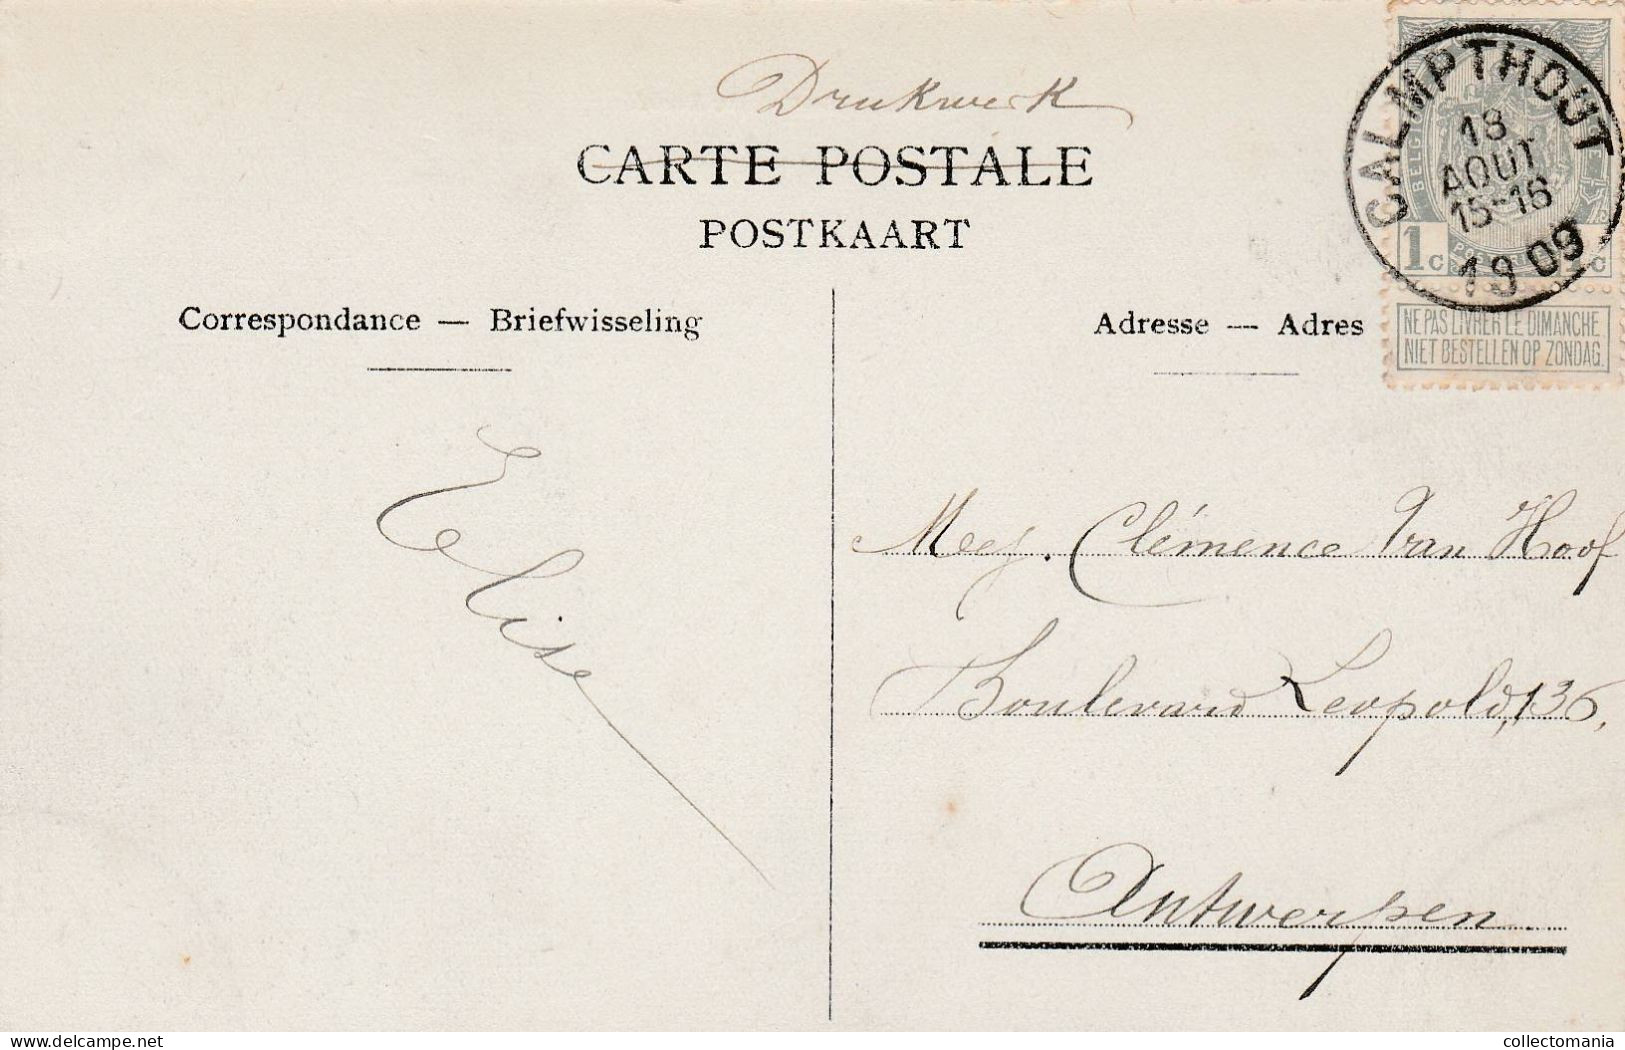 Drukwerk
CARTE POSTALE
POSTKAART
CALMPTHOUT
18
AOUT
15-16
1909
BELGIQUE
1c
NE PAS LIVRER LE DIMANCHE
NIET BESTELLEN OP ZONDAG
Correspondance — Briefwisseling
Adresse — Adres
Elise
Mej. Clémence Van Hoof
Boulevard Leopold, 136,
Antwerpen.
collectomania